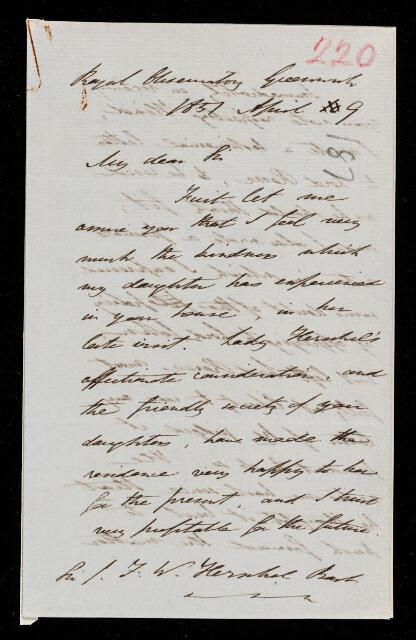 220
Royal Observatory Greenwich
1857 April 9
187
My dear Sir
First let me
assure you that I feel very
much the kindness which
my daughter has experienced
in your house in her
late visit. Lady Herschel's
affectionate consideration, and
the friendly society of your
daughters, have made the
residence very happy to her
for the present, and I trust
very profitable for the future.
Sir J. F. W. Herschel Bart.